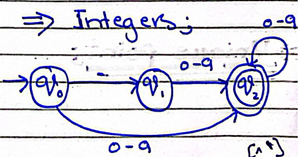 ⇒ Integers;
0-9
→ q₀ - q₁ 0-9 q₂
0-9